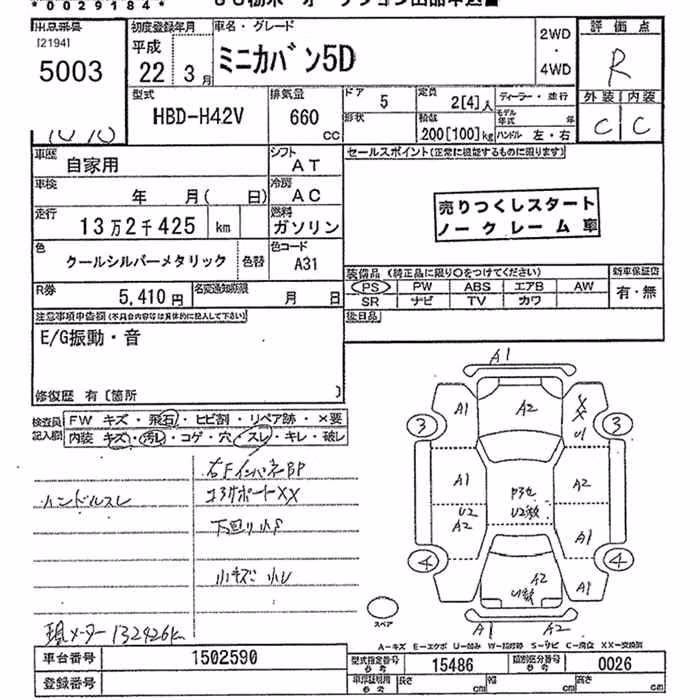 *0029184*
出品番号
[2194]
5003
初度登録年月
平成
22 3月
車名・グレード
ミニカバン5D
2WD
・
4WD
評価点
R
外装 内装
C C
型式
HBD-H42V
排気量
660
cc
ドア
5
定員
2[4]人
ディーラー・並行
形状
積載
200[100]kg
モデル年式 年
ハンドル 左・右
車歴
自家用
シフト
AT
セールスポイント(正常に機能するものに限ります)
車検
年 月( 日)
冷房
AC
走行
13万2千425 km
燃料
ガソリン
売りつくしスタート
ノークレーム車
色
クールシルバーメタリック
色替
色コード
A31
装備品(純正品に限り○をつけてください)
PS PW ABS エアB AW
SR ナビ TV カワ
新車保証書
有・無
R券
5,410円
名変通知期限
月 日
後日品
注意事項申告欄(不具合内容等は具体的に記入して下さい)
E/G振動・音
修復歴 有〔箇所 〕
検査員記入欄
FW キズ・飛石・ヒビ割・リペア跡・×要
内装 キズ・汚レ・コゲ・穴・スレ・キレ・破レ
右Fインパネ BP
ハンドルスレ
コアサポートXX
下回り小P
小キズ 小レ
現メーター132426km
A1
A1
A2
XX
U1
3
3
A1
A2
U2
A2
U2数
A1
4
4
A2
U数
A1
A1
A2
スペア
A-キズ E-エクボ U-凹み W-補修跡 S-サビ C-腐食 XX-交換済
車台番号
1502590
型式指定番号
参考
15486
類別区分番号
参考
0026
登録番号
車庫証明用
参考
長さ
cm
幅
cm
高さ
cm